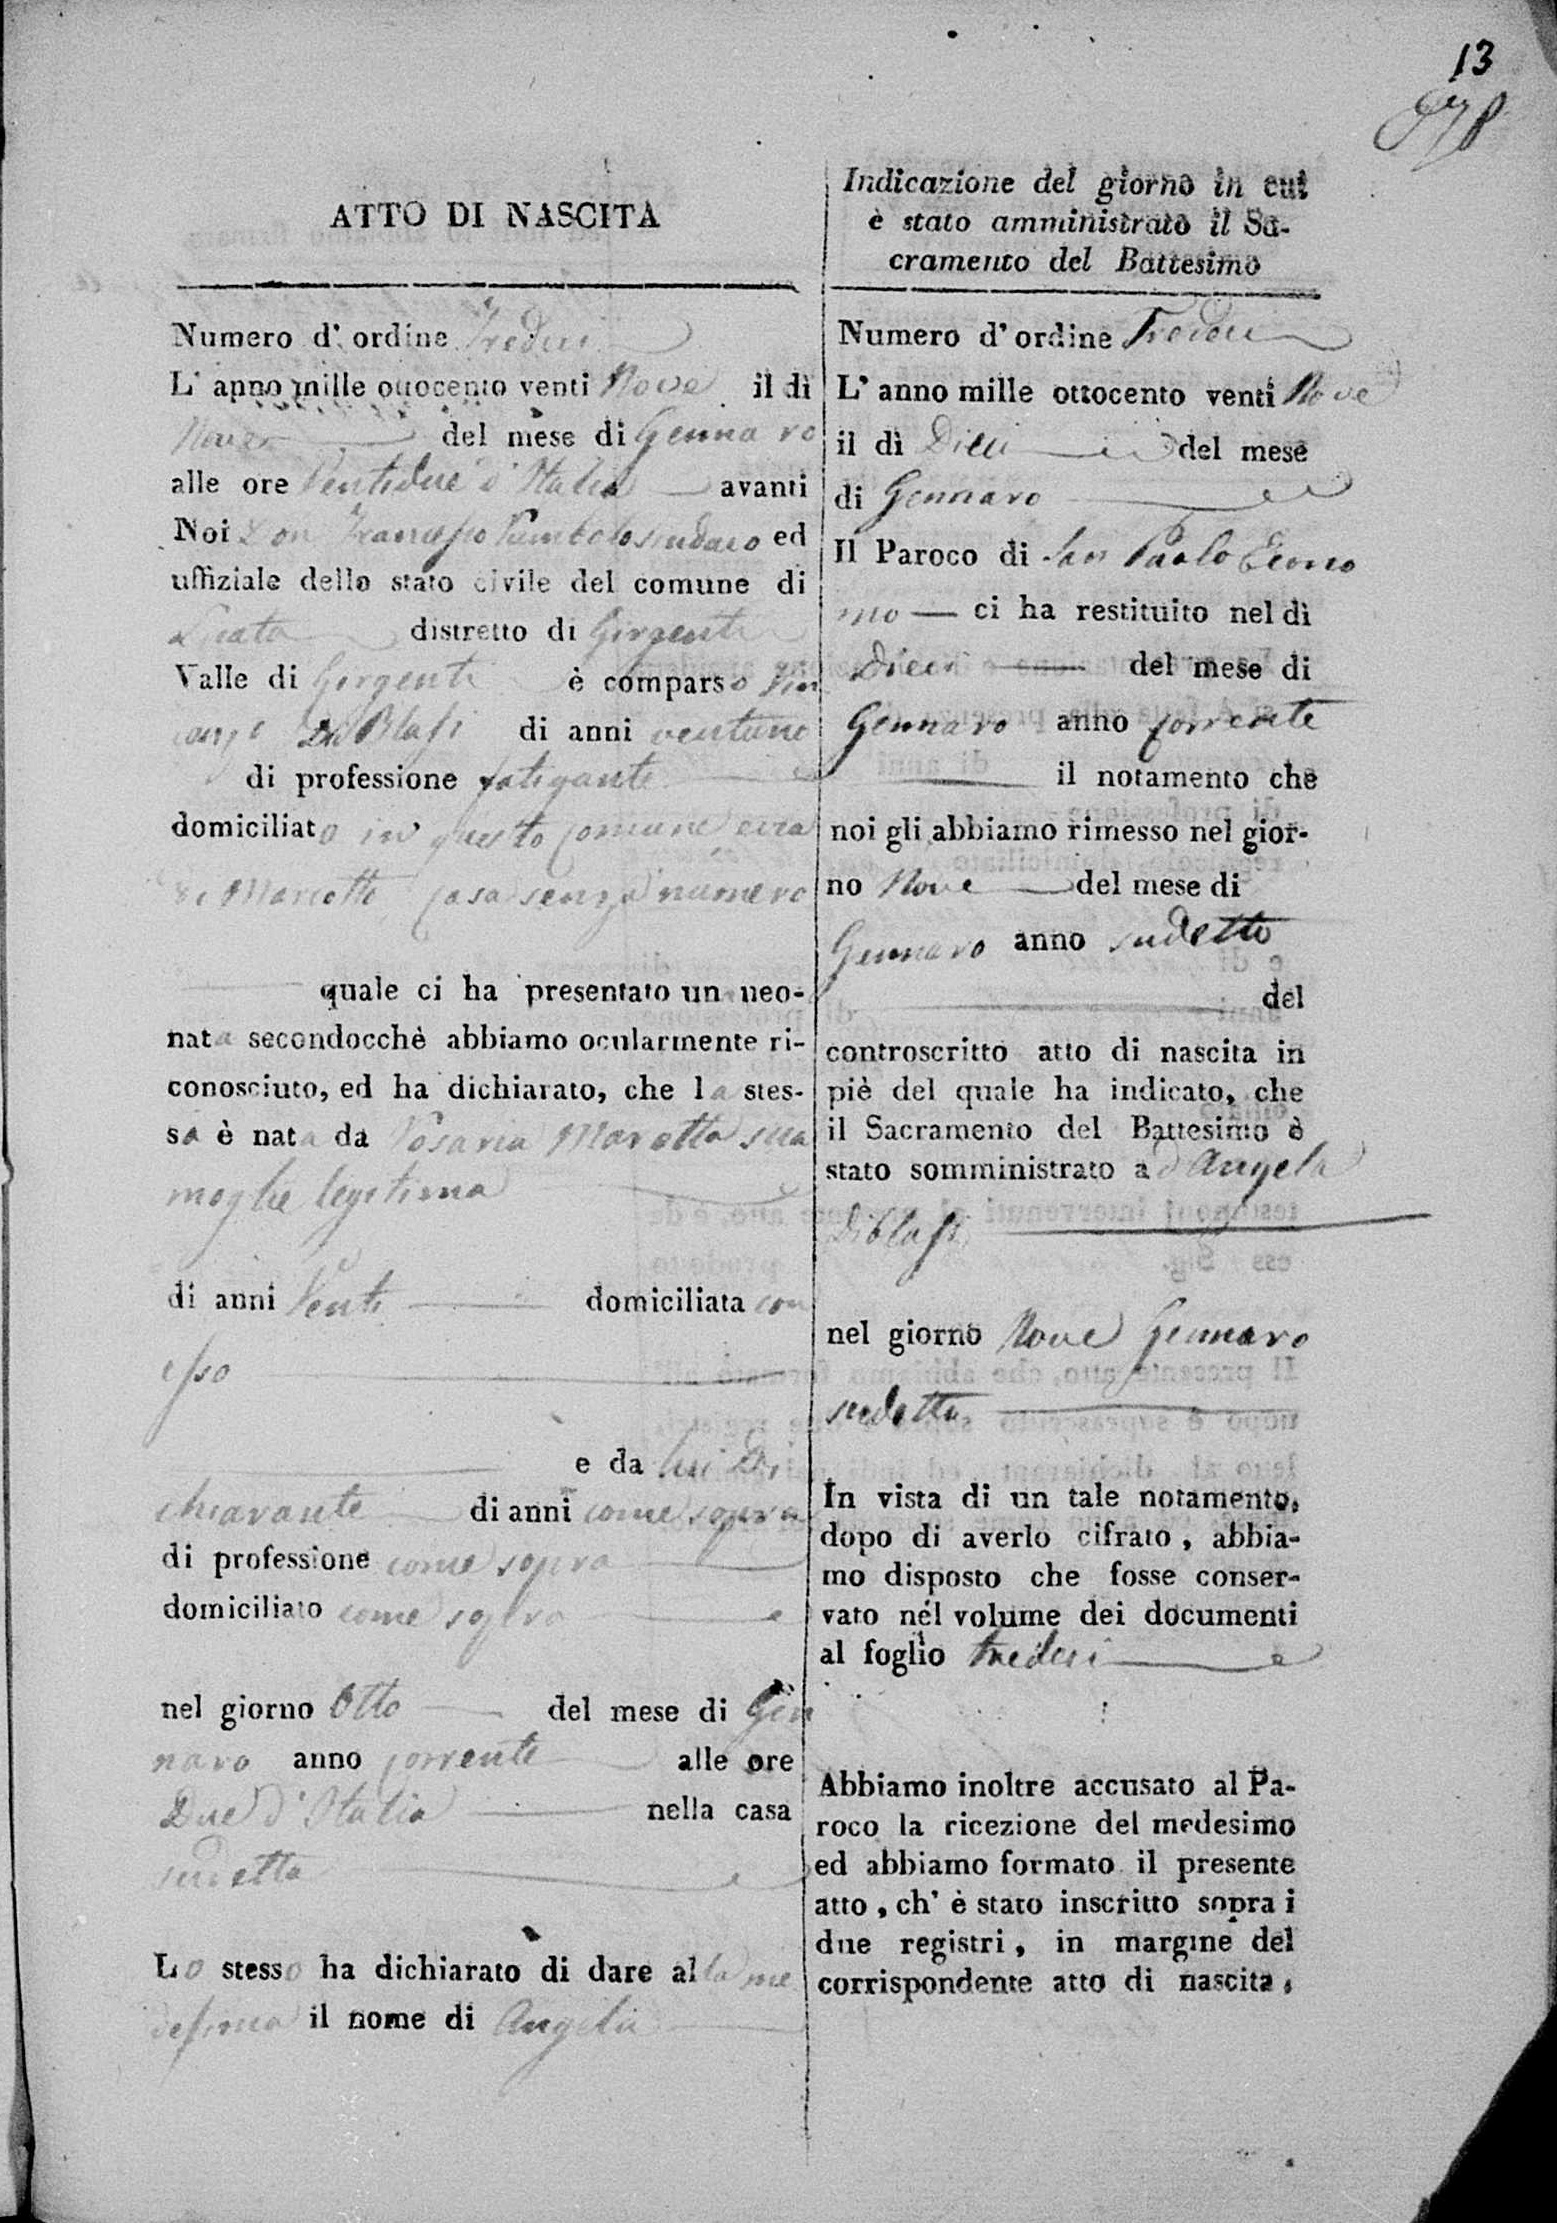 13
ATTO DI NASCITA
Numero d'ordine Tredici
L'anno mille ottocento venti Nove il dì
Nove del mese di Gennaro
alle ore Ventidue d'Italia avanti
Noi Don Francesco sindaco ed
uffiziale dello stato civile del comune di
Licata distretto di Girgenti
Valle di Girgenti è comparso Vin
cenzo Di Blasi di anni ventuno
di professione fatigante
domiciliato in questo comune
di Marotta casa senza numero
quale ci ha presentato un neo-
nata secondocchè abbiamo ocularmente ri-
conosciuto, ed ha dichiarato, che la stes-
sa è nata da Rosaria Marotta sua
moglie legitima
di anni Venti domiciliata con
esso
e da lui Di
chiarante di anni come sopra
di professione come sopra
domiciliato come sopra
nel giorno Otto del mese di Gen
naro anno corrente alle ore
Due d'Italia nella casa
sudetta
Lo stesso ha dichiarato di dare alla me
desima il nome di Angela
Indicazione del giorno in cui
è stato amministrato il Sa-
cramento del Battesimo
Numero d'ordine Tredici
L'anno mille ottocento venti Nove
il dì Dieci del mese
di Gennaro
Il Paroco di San Paolo Eremo
ci ha restituito nel dì
Dieci del mese di
Gennaro anno corrente
il notamento che
noi gli abbiamo rimesso nel gior-
no Nove del mese di
Gennaro anno sudetto
del
controscritto atto di nascita in
piè del quale ha indicato, che
il Sacramento del Battesimo è
stato somministrato a d'Angela
Di Blasi
nel giorno Nove Gennaro
sudetto
In vista di un tale notamento,
dopo di averlo cifrato, abbia-
mo disposto che fosse conser-
vato nel volume dei documenti
al foglio tredici
Abbiamo inoltre accusato al Pa-
roco la ricezione del medesimo
ed abbiamo formato il presente
atto, ch'è stato inscritto sopra i
due registri, in margine del
corrispondente atto di nascita.